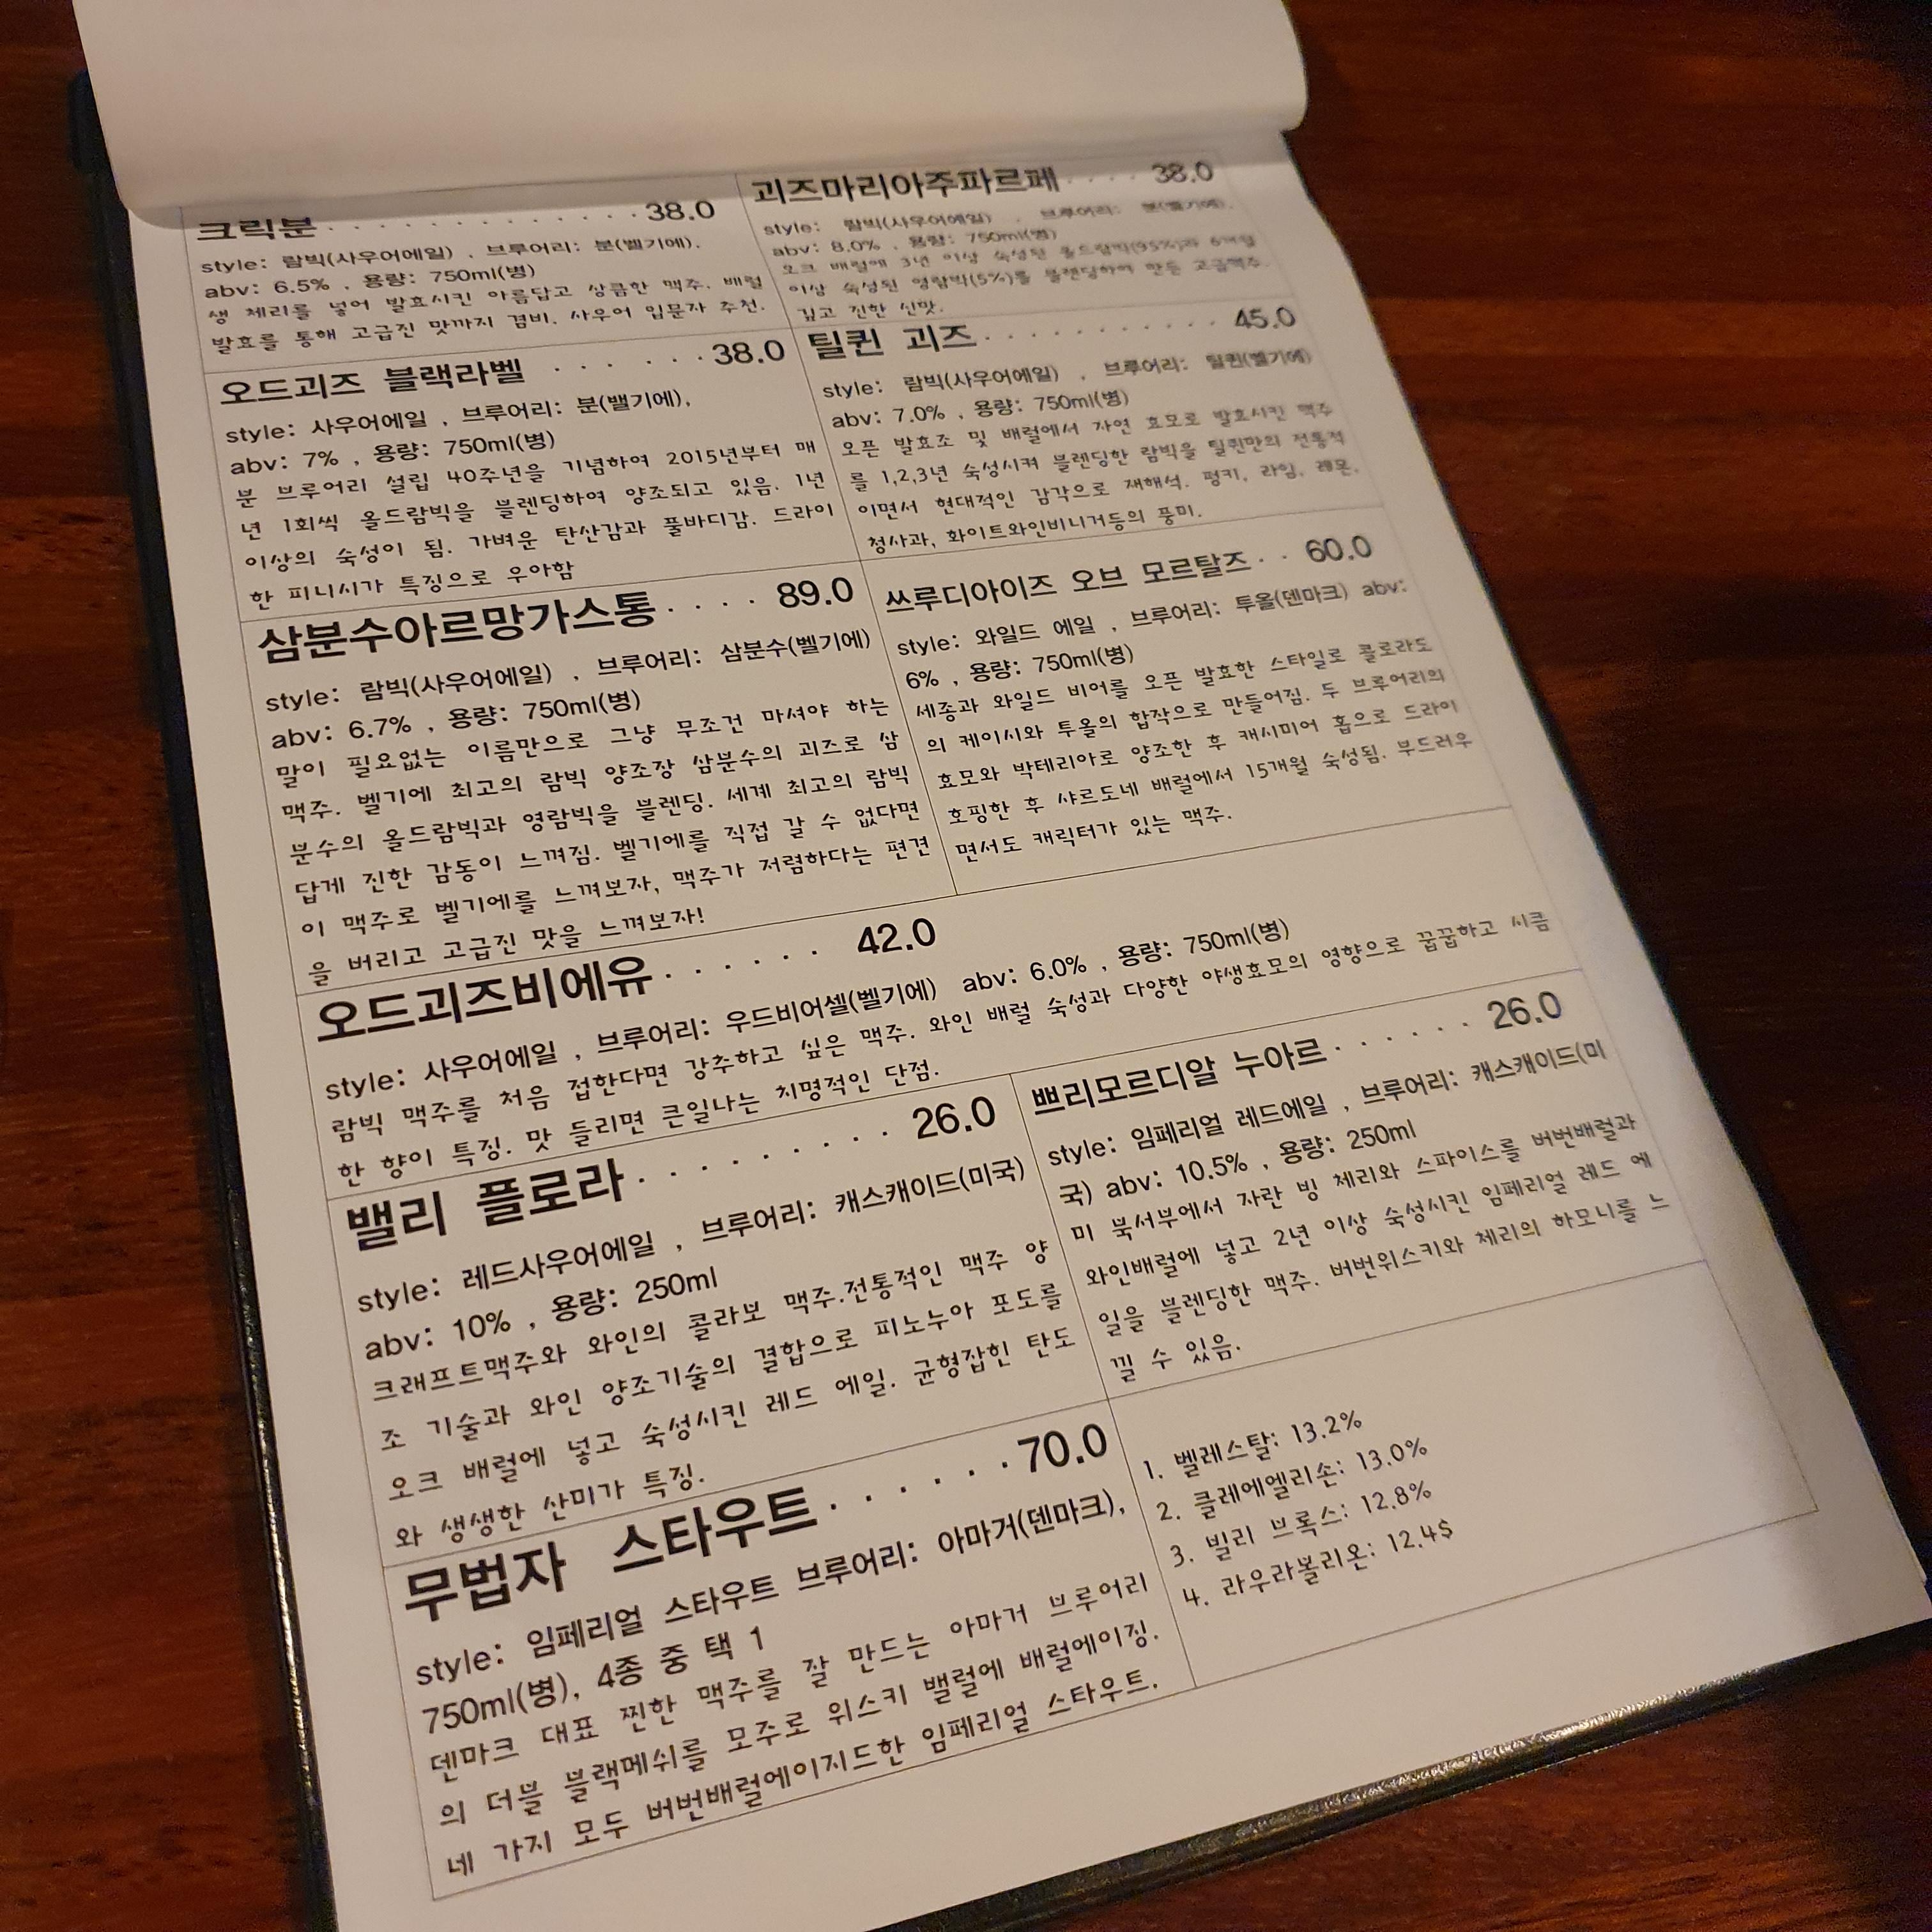 크릭분 · · · · · · · · · · · · 38.0
style: 람빅(사우어에일) , 브루어리: 분(벨기에).
abv: 6.5% , 용량: 750ml(병)
생 체리를 넣어 발효시킨 아름답고 상큼한 맥주. 배럴
발효를 통해 고급진 맛까지 겸비. 사우어 입문자 추천.
괴즈마리아주파르페 · · · · 38.0
style: 람빅(사우어에일) , 브루어리: 분(벨기에).
abv: 8.0% , 용량: 750ml(병)
오크 배럴에 3년 이상 숙성된 올드람빅(95%)과 6개월
이상 숙성된 영람빅(5%)를 블렌딩하여 만든 고급맥주.
깊고 진한 신맛.
오드괴즈 블랙라벨 · · · · · · 38.0
style: 사우어에일 , 브루어리: 분(밸기에),
abv: 7% , 용량: 750ml(병)
분 브루어리 설립 40주년을 기념하여 2015년부터 매
년 1회씩 올드람빅을 블렌딩하여 양조되고 있음. 1년
이상의 숙성이 됨. 가벼운 탄산감과 풀바디감. 드라이
한 피니시가 특징으로 우아함
틸퀸 괴즈 · · · · · · · · · · 45.0
style: 람빅(사우어에일) , 브루어리: 틸퀸(벨기에)
abv: 7.0% , 용량: 750ml(병)
오픈 발효조 및 배럴에서 자연 효모로 발효시킨 맥주
를 1,2,3년 숙성시켜 블렌딩한 람빅을 틸퀸만의 전통적
이면서 현대적인 감각으로 재해석. 펑키, 라임, 레몬,
청사과, 화이트와인비니거등의 풍미.
삼분수아르망가스통 · · · · 89.0
style: 람빅(사우어에일) , 브루어리: 삼분수(벨기에)
abv: 6.7% , 용량: 750ml(병)
말이 필요없는 이름만으로 그냥 무조건 마셔야 하는
맥주. 벨기에 최고의 람빅 양조장 삼분수의 괴즈로 삼
분수의 올드람빅과 영람빅을 블렌딩. 세계 최고의 람빅
답게 진한 감동이 느껴짐. 벨기에를 직접 갈 수 없다면
이 맥주로 벨기에를 느껴보자, 맥주가 저렴하다는 편견
을 버리고 고급진 맛을 느껴보자!
쓰루디아이즈 오브 모르탈즈 · · 60.0
style: 와일드 에일 , 브루어리: 투올(덴마크) abv:
6% , 용량: 750ml(병)
세종과 와일드 비어를 오픈 발효한 스타일로 콜로라도
의 케이시와 투올의 합작으로 만들어짐. 두 브루어리의
효모와 박테리아로 양조한 후 캐시미어 홉으로 드라이
호핑한 후 샤르도네 배럴에서 15개월 숙성됨. 부드러우
면서도 캐릭터가 있는 맥주.
오드괴즈비에유 · · · · · · 42.0
style: 사우어에일 , 브루어리: 우드비어셀(벨기에) abv: 6.0% , 용량: 750ml(병)
람빅 맥주를 처음 접한다면 강추하고 싶은 맥주. 와인 배럴 숙성과 다양한 야생효모의 영향으로 꿉꿉하고 시큼
한 향이 특징. 맛 들리면 큰일나는 치명적인 단점.
밸리 플로라 · · · · · · · · · 26.0
style: 레드사우어에일 , 브루어리: 캐스캐이드(미국)
abv: 10% , 용량: 250ml
크래프트맥주와 와인의 콜라보 맥주.전통적인 맥주 양
조 기술과 와인 양조기술의 결합으로 피노누아 포도를
오크 배럴에 넣고 숙성시킨 레드 에일. 균형잡힌 탄도
와 생생한 산미가 특징.
쁘리모르디알 누아르 · · · · · · 26.0
style: 임페리얼 레드에일 , 브루어리: 캐스캐이드(미
국) abv: 10.5% , 용량: 250ml
미 북서부에서 자란 빙 체리와 스파이스를 버번배럴과
와인배럴에 넣고 2년 이상 숙성시킨 임페리얼 레드 에
일을 블렌딩한 맥주. 버번위스키와 체리의 하모니를 느
낄 수 있음.
무법자 스타우트 · · · · · · · 70.0
style: 임페리얼 스타우트 브루어리: 아마거(덴마크),
750ml(병), 4종 중 택 1
덴마크 대표 찐한 맥주를 잘 만드는 아마거 브루어리
의 더블 블랙메쉬를 모주로 위스키 밸럴에 배럴에이징.
네 가지 모두 버번배럴에이지드한 임페리얼 스타우트.
1. 벨레스탈: 13.2%
2. 클레에엘리손: 13.0%
3. 빌리 브록스: 12.8%
4. 라우라볼리온: 12.4$